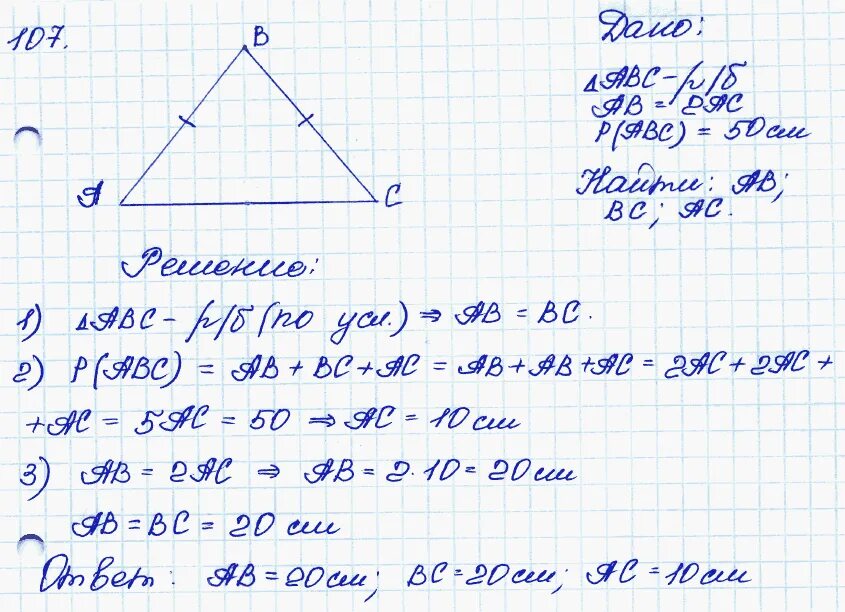 107.
B
A
C
Дано:
△ABC – р/б
AB = 2AC
P(ABC) = 50 см
Найти: AB;
BC; AC.
Решение:
1) △ABC – р/б (по усл.) ⇒ AB = BC.
2) P(ABC) = AB + BC + AC = AB + AB + AC = 2AC + 2AC +
+ AC = 5AC = 50 ⇒ AC = 10 см
3) AB = 2AC ⇒ AB = 2 · 10 = 20 см
AB = BC = 20 см
Ответ: AB = 20 см; BC = 20 см; AC = 10 см